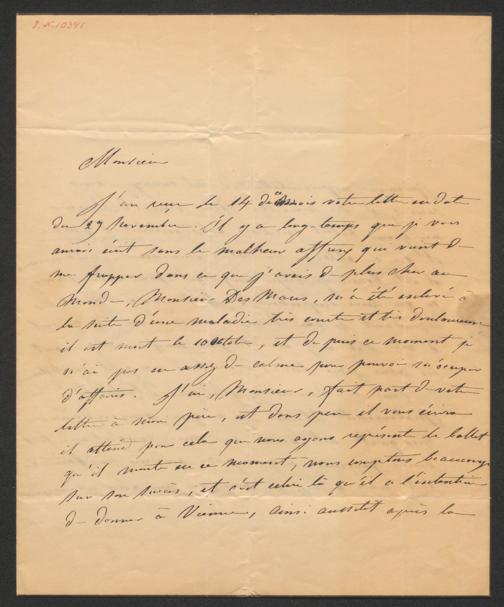 I.N.10391
Monsieur
J'ai reçu le 14 de ce mois votre lettre en date
du 27 Novembre. Il y a long-temps que je vous
aurais écrit sans le malheur affreux qui vient de
me frapper dans ce que j'avais de plus cher au
Monde, Monsieur Des Mares, m'a été enlevé à
la suite d'une maladie très courte et très douloureuse
il est mort le 10 octobre, et depuis ce moment je
n'ai pas eu assez de calme pour pouvoir m'occuper
d'affaires. J'ai, Monsieur, fait part de votre
lettre à mon père, et dans peu il vous écrira
il attend pour cela que nous ayons représenté le ballet
qu'il monte en ce moment, nous comptons beaucoup
sur son succès, et c'est celui là qu'il a l'intention
de donner à Vienne, ainsi aussitôt après la